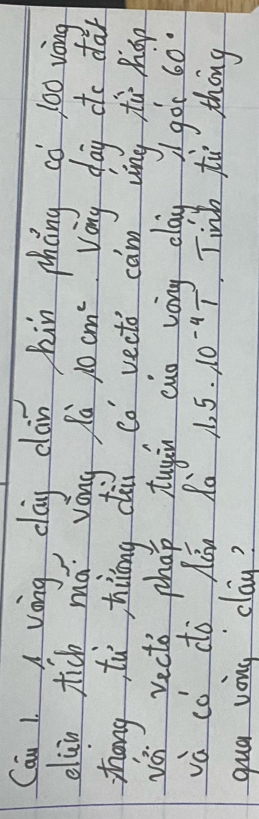 Câu 1. 1 vòng dây dẫn kín phẳng có 100 vòng
diện tích mỗi vòng là 10 cm². Vòng dây đc đặt
trong từ trường đều có vectơ cảm ứng từ hợp
với vectơ pháp tuyến của vòng dây 1 góc 60°
và có độ lớn là 1,5.10⁻⁴ T. Tính từ thông
qua vòng dây?